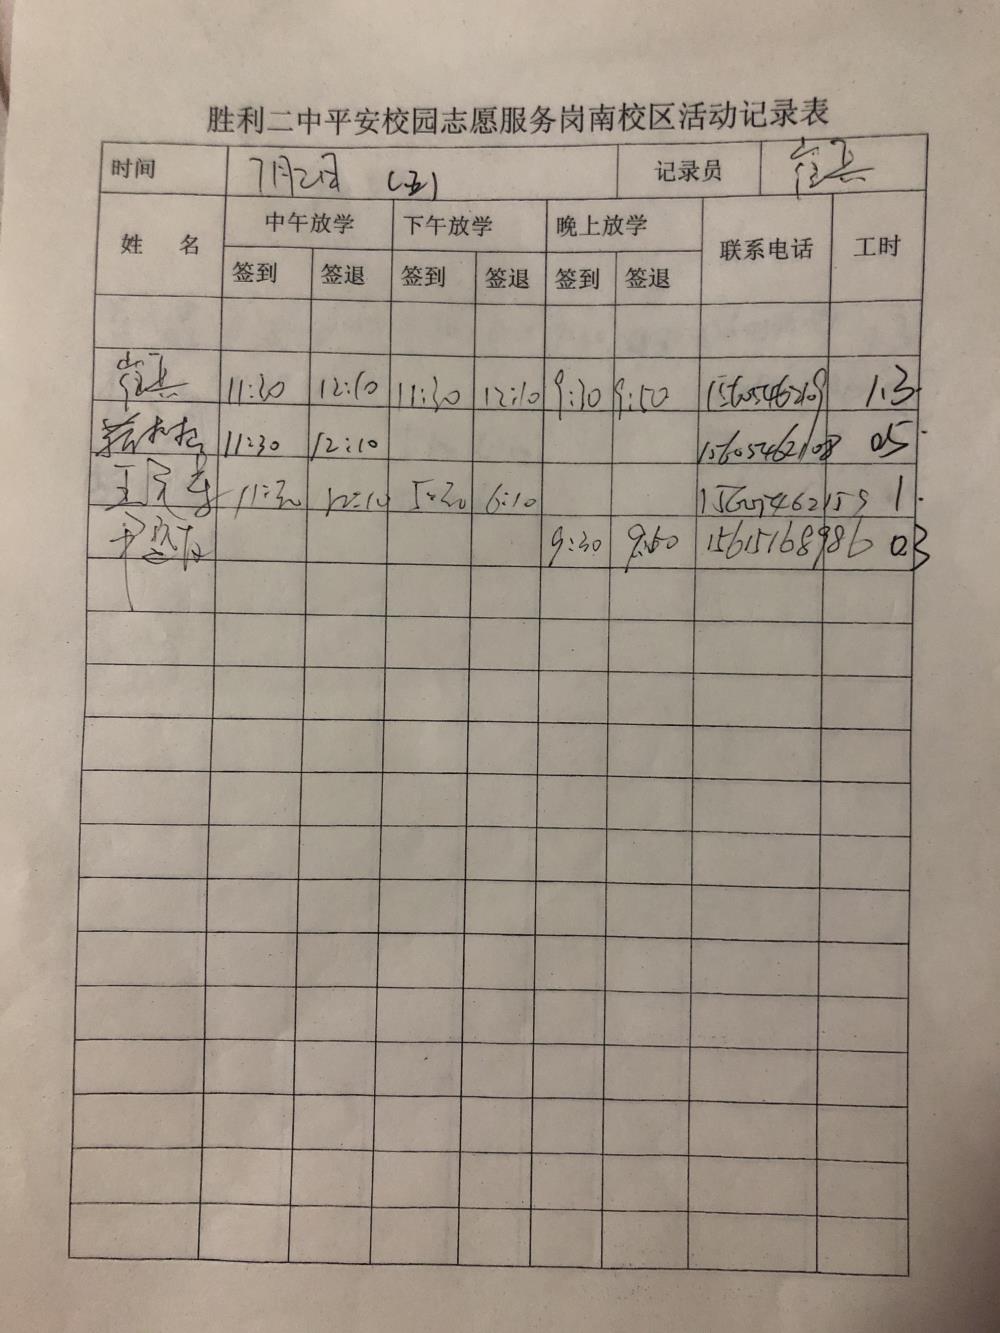 胜利二中平安校园志愿服务岗南校区活动记录表
时间 7月2日 (五) 记录员
姓 名 中午放学 下午放学 晚上放学 联系电话 工时
签到 签退 签到 签退 签到 签退
11:30 12:10 11:30 12:10 9:30 9:50 15605462109 1.3
11:30 12:10 15605462108 0.5
11:30 12:10 5:30 6:10 15605462159 1
9:30 9:50 15615168986 0.3